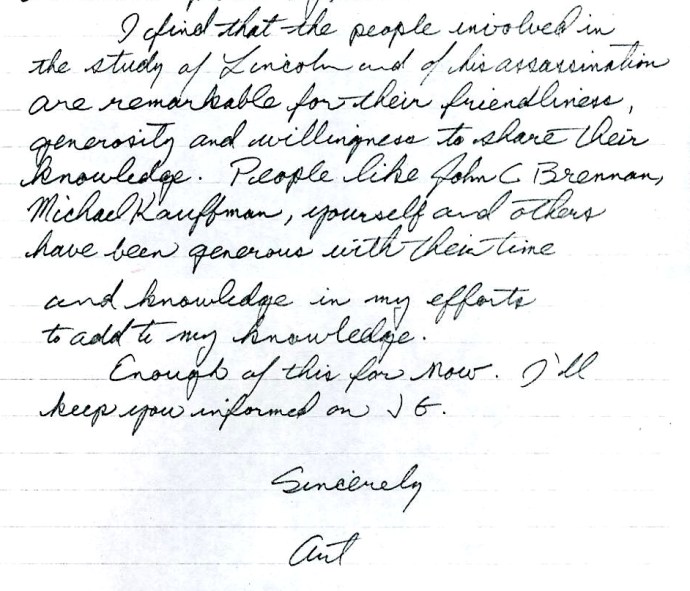 I find that the people involved in
the study of Lincoln and of his assassination
are remarkable for their friendliness,
generosity and willingness to share their
knowledge. People like John C Brennan,
Michael Kauffman, yourself and others
have been generous with their time
and knowledge in my efforts
to add to my knowledge.
Enough of this for now. I'll
keep you informed on J G.
Sincerely
Art